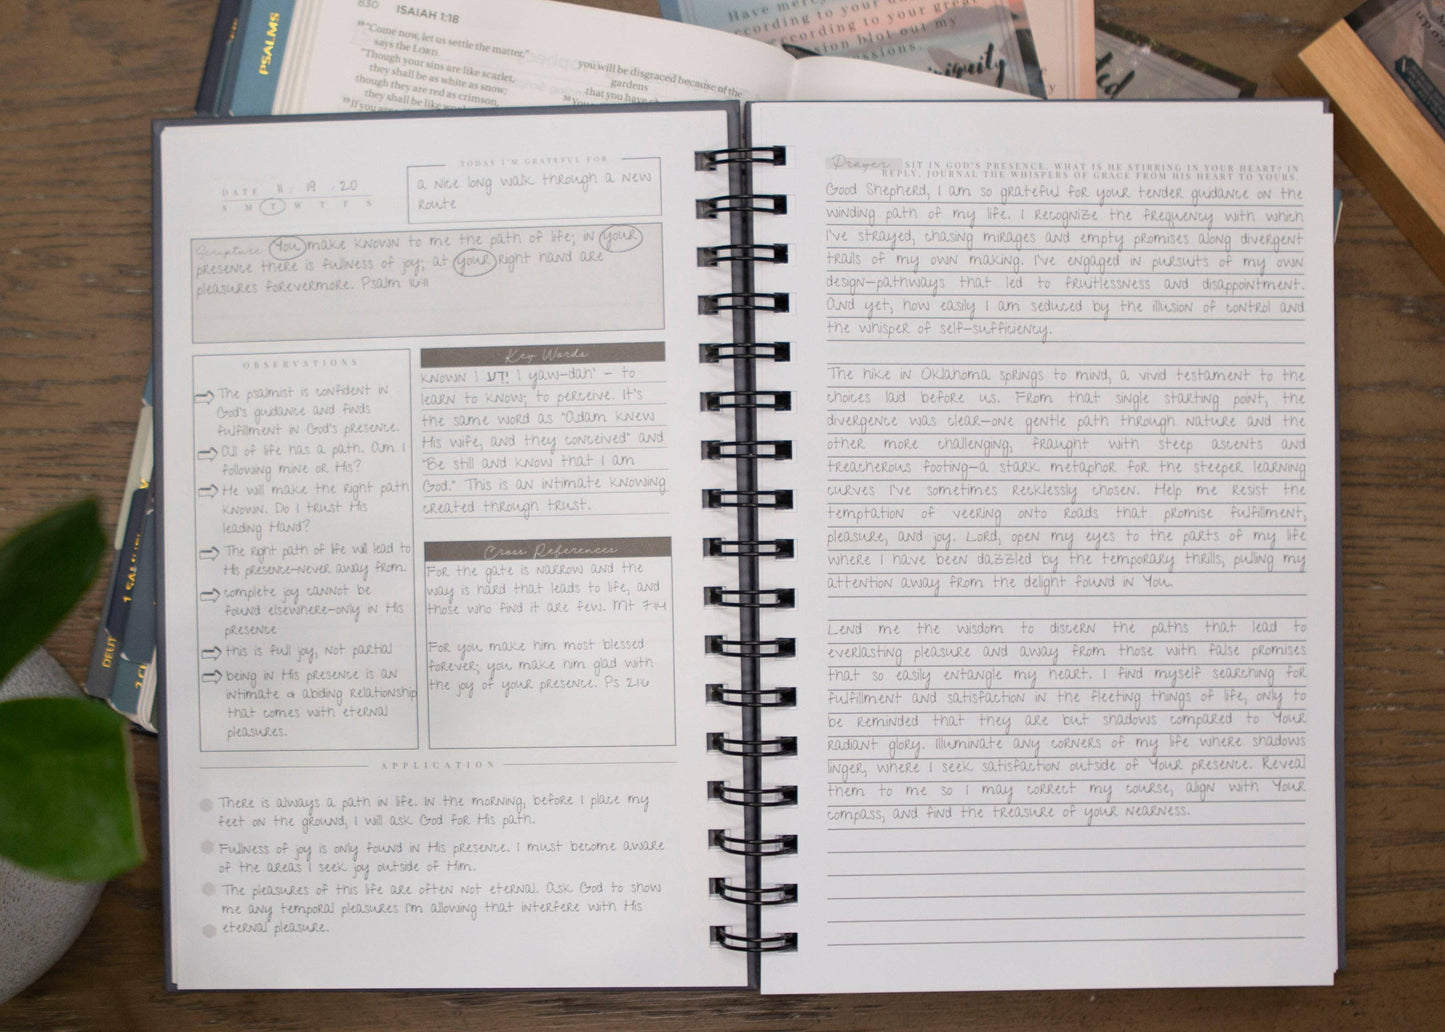 PSALMS
830 ISAIAH 1:18
18 "Come now, let us settle the matter,"
says the LORD.
"Though your sins are like scarlet,
they shall be as white as snow;
though they are red as crimson,
they shall be like
19 If you are
you will be disgraced because of the
gardens
that you have
30 You
Have mercy
according to your
according to your great
blot out my
DATE 11. 19 .20
S M T W T F S
TODAY I'M GRATEFUL FOR
a nice long walk through a new
route
Scripture You make known to me the path of life; in your
presence there is fullness of joy; at your right hand are
pleasures forevermore. Psalm 16:11
OBSERVATIONS
The psalmist is confident in
God's guidance and finds
fulfillment in God's presence.
All of life has a path. Am I
following mine or His?
He will make the right path
known. Do I trust His
leading Hand?
The right path of life will lead to
His presence-never away from.
complete joy cannot be
found elsewhere-only in His
presence
this is full joy, not partial
being in His presence is an
intimate & abiding relationship
that comes with eternal
pleasures.
Key Words
known | יָדַע | yaw-dah' - to
learn to know; to perceive. It's
the same word as "Adam knew
His wife, and they conceived" and
"Be still and know that I am
God." This is an intimate knowing
created through trust.
Cross References
For the gate is narrow and the
way is hard that leads to life, and
those who find it are few. Mt 7:14
For you make him most blessed
forever; you make him glad with
the joy of your presence. Ps 21:6
APPLICATION
There is always a path in life. In the morning, before I place my
feet on the ground, I will ask God for His path.
Fullness of joy is only found in His presence. I must become aware
of the areas I seek joy outside of Him.
The pleasures of this life are often not eternal. Ask God to show
me any temporal pleasures I'm allowing that interfere with His
eternal pleasure.
Prayer SIT IN GOD'S PRESENCE. WHAT IS HE STIRRING IN YOUR HEART? IN
REPLY, JOURNAL THE WHISPERS OF GRACE FROM HIS HEART TO YOURS.
Good Shepherd, I am so grateful for your tender guidance on the
winding path of my life. I recognize the frequency with which
I've strayed, chasing mirages and empty promises along divergent
trails of my own making. I've engaged in pursuits of my own
design-pathways that led to fruitlessness and disappointment.
And yet, how easily I am seduced by the illusion of control and
the whisper of self-sufficiency.
The hike in Oklahoma springs to mind, a vivid testament to the
choices laid before us. From that single starting point, the
divergence was clear-one gentle path through nature and the
other more challenging, fraught with steep ascents and
treacherous footing-a stark metaphor for the steeper learning
curves I've sometimes recklessly chosen. Help me resist the
temptation of veering onto roads that promise fulfillment,
pleasure, and joy. Lord, open my eyes to the parts of my life
where I have been dazzled by the temporary thrills, pulling my
attention away from the delight found in You.
Lend me the wisdom to discern the paths that lead to
everlasting pleasure and away from those with false promises
that so easily entangle my heart. I find myself searching for
fulfillment and satisfaction in the fleeting things of life, only to
be reminded that they are but shadows compared to Your
radiant glory. Illuminate any corners of my life where shadows
linger, where I seek satisfaction outside of Your presence. Reveal
them to me so I may correct my course, align with Your
compass, and find the treasure of your nearness.